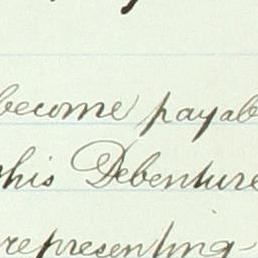 become payab
this Debenture
representing